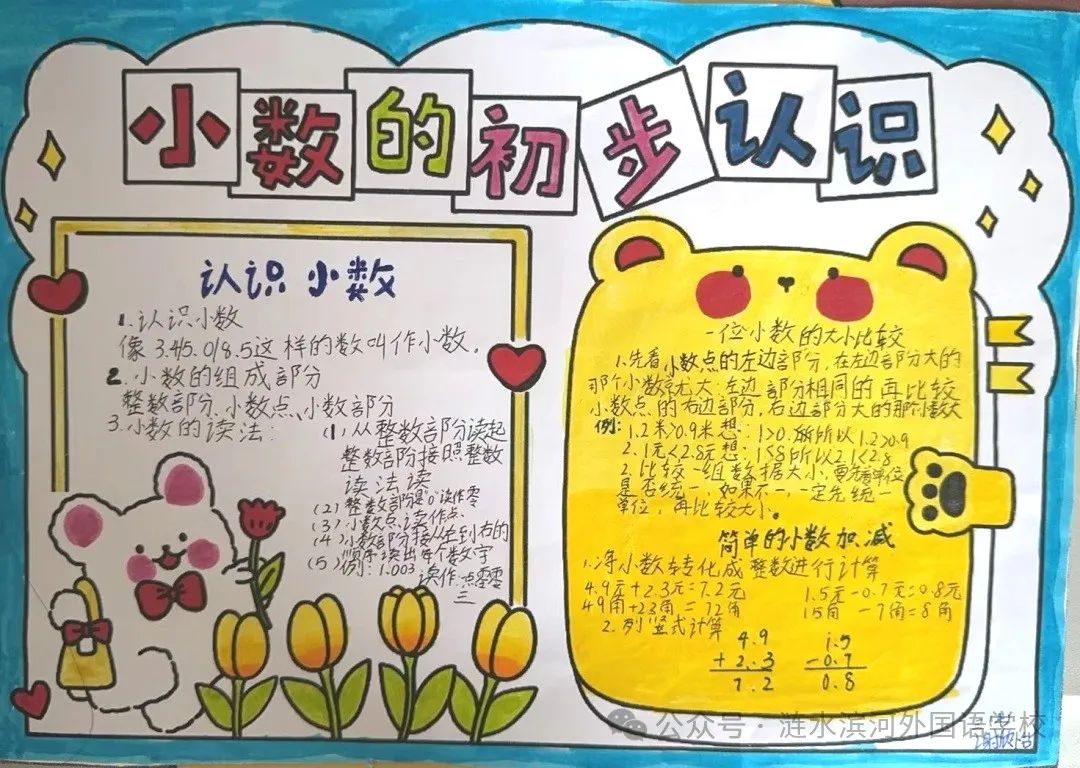 小数的初步认识
认识小数
1.认识小数
像3.45.0/8.5这样的数叫作小数。
2.小数的组成部分
整数部分、小数点、小数部分
3.小数的读法:
(1),从整数部分读起
整数部份按照整数
读法读
(2)整数部份是"0"读作零
(3)小数点,读作点.
(4)小数部分按从左到右的
顺序读出每个数字
(5)例:1.003
读作:一点零零
三
一位小数的大小比较
1.先看小数点的左边部分,在左边部分大的
那个小数就大;左边部分相同的再比较
小数点的右边部分,右边部分大的那个小数大
例:
1.2米>0.9米想:1>0.所以1.2>0.9
2.1元<2.8元想:1≤8所以2.1<2.8
2.比较一组数据大小,要先看单位
是否统一,如果不一,一定先统一
单位,再比较大小。
简单的小数加.减
1.将小数转化成整数进行计算
4.9元+2.3元=7.2元
1.5元-0.7元=0.8元
49角+23角=72角
15角-7角=8角
2.列竖式计算
4.9
+2.3
7.2
1.5
-0.7
0.8
公众号·涟水滨河外国语学校